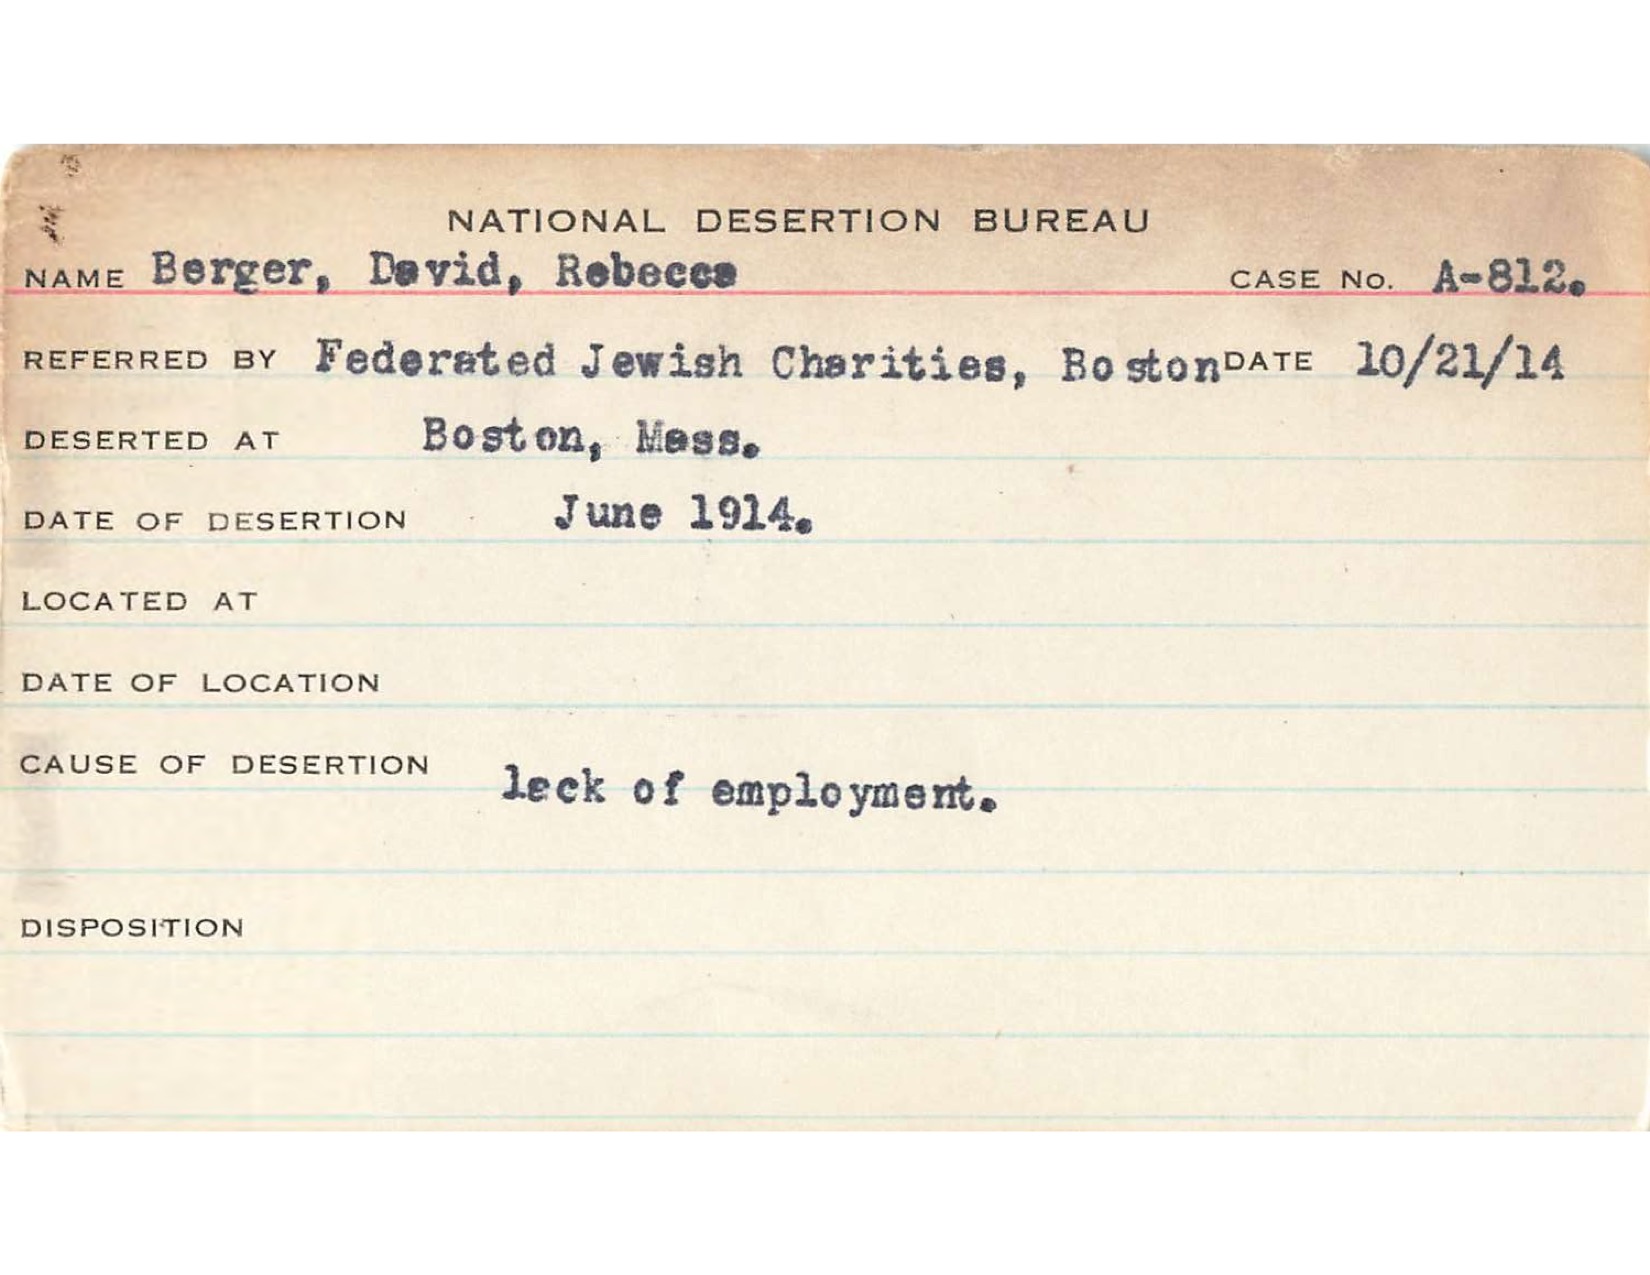 NATIONAL DESERTION BUREAU
NAME Berger, David, Rebecca CASE No. A-812.
REFERRED BY Federated Jewish Charities, Boston DATE 10/21/14
DESERTED AT Boston, Mass.
DATE OF DESERTION June 1914.
LOCATED AT
DATE OF LOCATION
CAUSE OF DESERTION lack of employment.
DISPOSITION